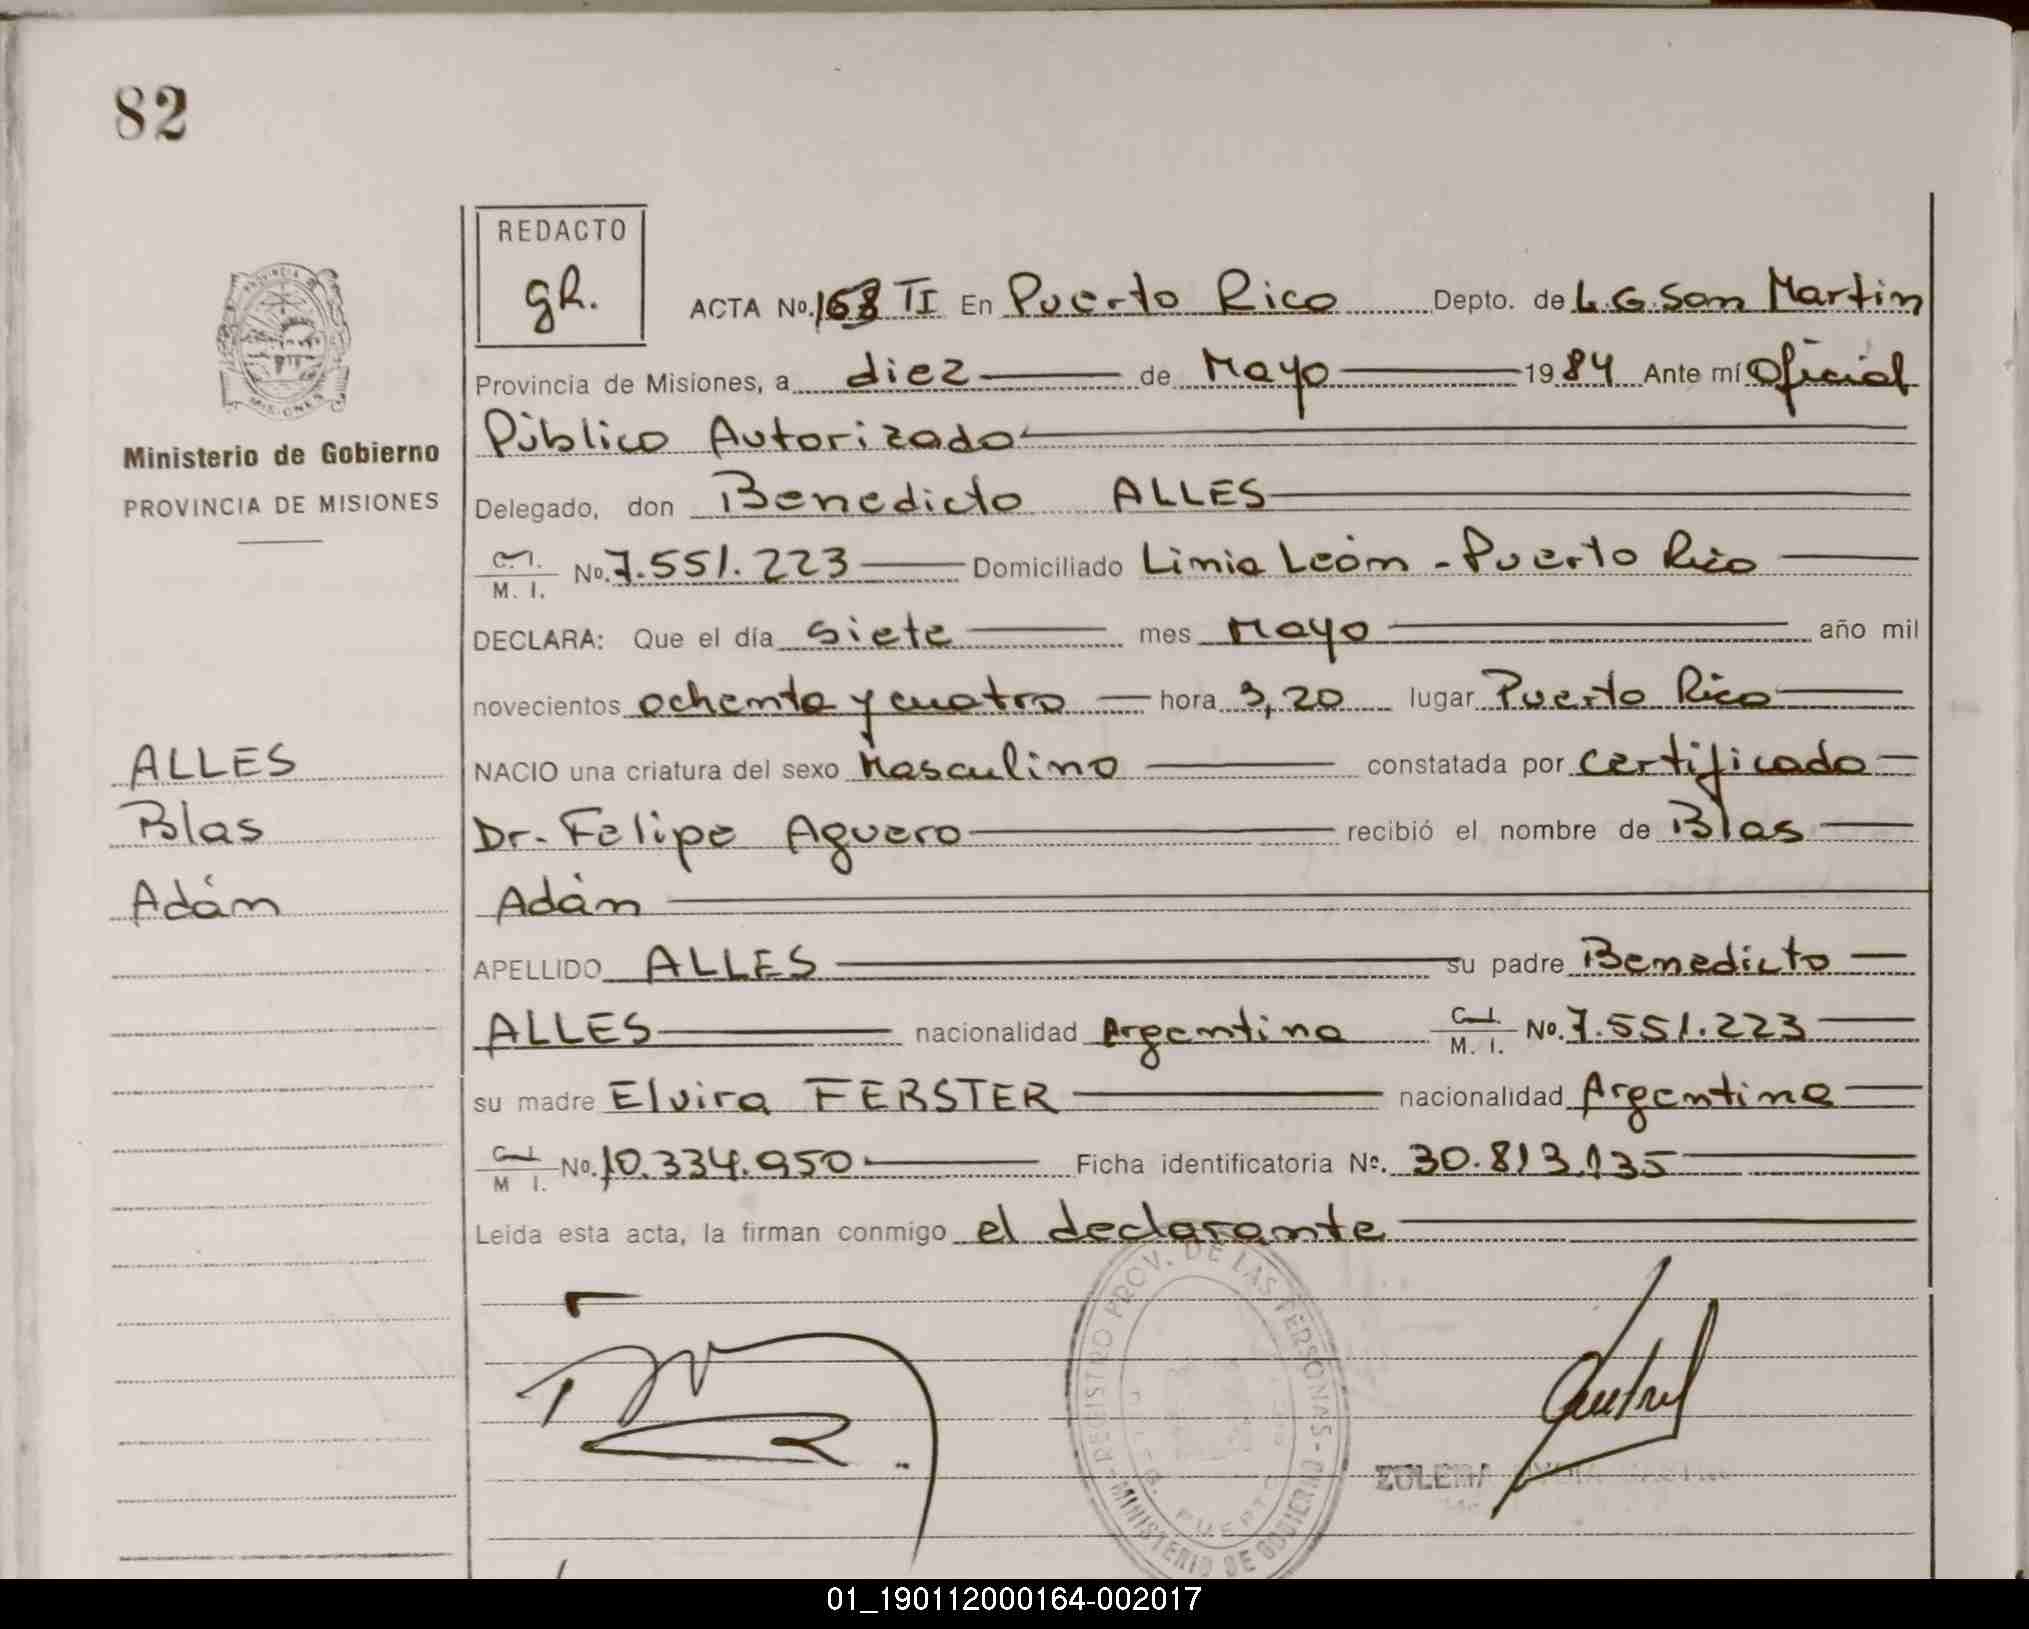 82
REDACTO
gR.
ACTA No. 168 TI En Puerto Rico Depto. de L.G. San Martin
Provincia de Misiones, a diez de Mayo 1984 Ante mí Oficial
Público Autorizado
Ministerio de Gobierno
PROVINCIA DE MISIONES
Delegado, don Benedicto ALLES
C.I. M. I. No. 7.551.223 Domiciliado Linia León - Puerto Rico
DECLARA: Que el día siete mes Mayo año mil
novecientos ochenta y cuatro hora 3,20 lugar Puerto Rico
ALLES
Blas
Adán
NACIO una criatura del sexo Masculino constatada por certificado
Dr. Felipe Aguero recibió el nombre de Blas
Adán
APELLIDO ALLES su padre Benedicto
ALLES nacionalidad Argentina C.I. M. I. No. 7.551.223
su madre Elvira FERSTER nacionalidad Argentina
C.I. M I. No. 10.334.950 Ficha identificatoria Nº. 30.813.135
Leida esta acta, la firman conmigo el declarante
REGISTRO PROV. DE LAS PERSONAS - MINISTERIO DE GOBIERNO
PUERTO
ZULEMA
01_190112000164-002017